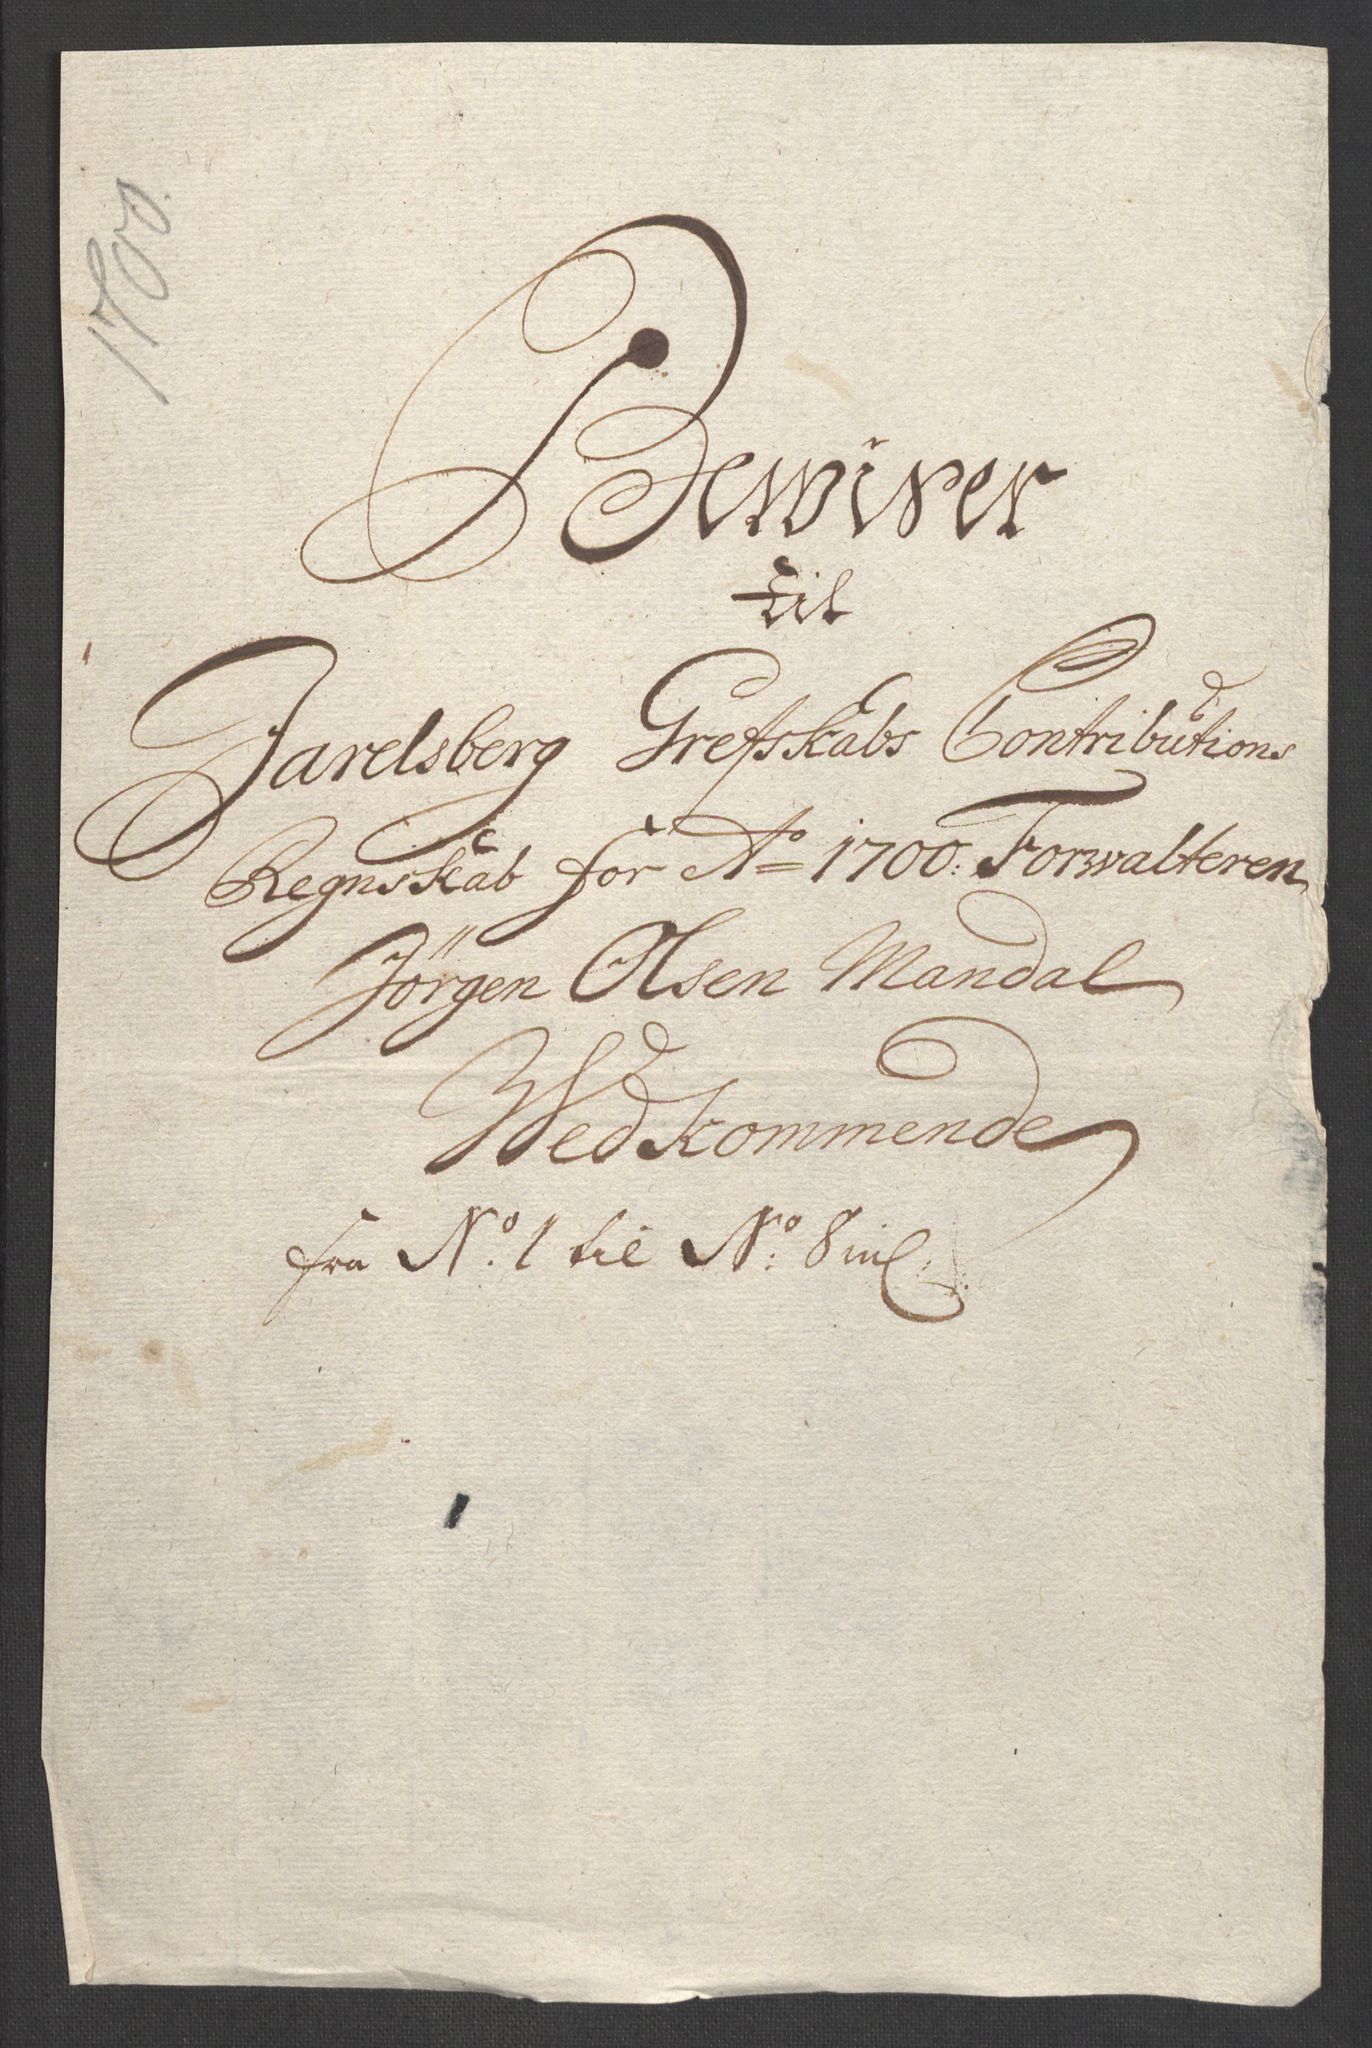 1700.
Bewiser
til
Jarelsberg Grefskabs Contributions
Regnskab for Ao 1700: Forwalteren
Jörgen Olsen Mandal
Wedkommende
fra No. 1 til No: 8 incl: